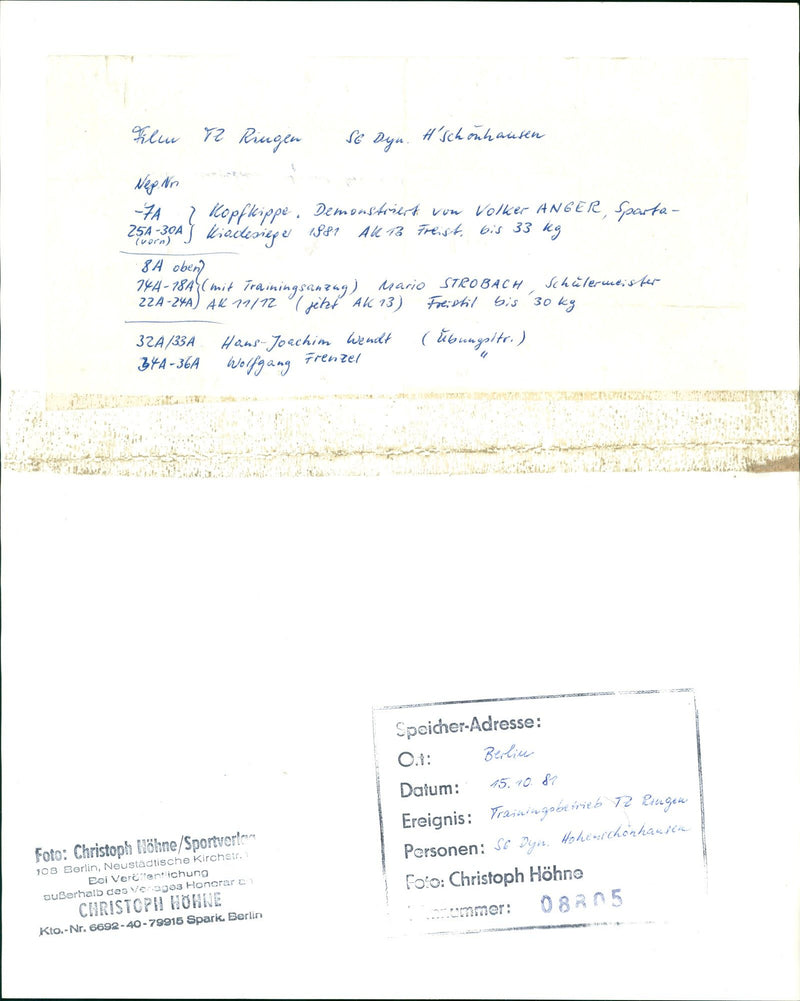 Film TZ Ringen SG Dyn. H'schönhausen
Neg. Nr.
-7A } Kopfkippe. Demonstriert von Volker ANGER, Sparta-
25A-30A (vorn) } kiadesieger 1981 AK 13 Freist. bis 33 kg
8A oben
14A-18A (mit Trainingsanzug) Mario STROBACH, Schülermeister
22A-24A AK 11/12 (jetzt AK 13) Freistil bis 30 kg
32A/33A Hans-Joachim Wendt (Übungsltr.)
34A-36A Wolfgang Frenzel "
Speicher-Adresse:
Ort: Berlin
Datum: 15.10.81
Ereignis: Trainingsbetrieb TZ Ringen
Personen: SG Dyn. Hohenschönhausen
Foto: Christoph Höhne
nummer: 08805
Foto: Christoph Höhne/Sportverlag
108 Berlin, Neustädtische Kirchstr.
Bei Veröffentlichung
außerhalb des Verlages Honorar an
CHRISTOPH HÖHNE
Kto.-Nr. 6692-40-79915 Spark. Berlin